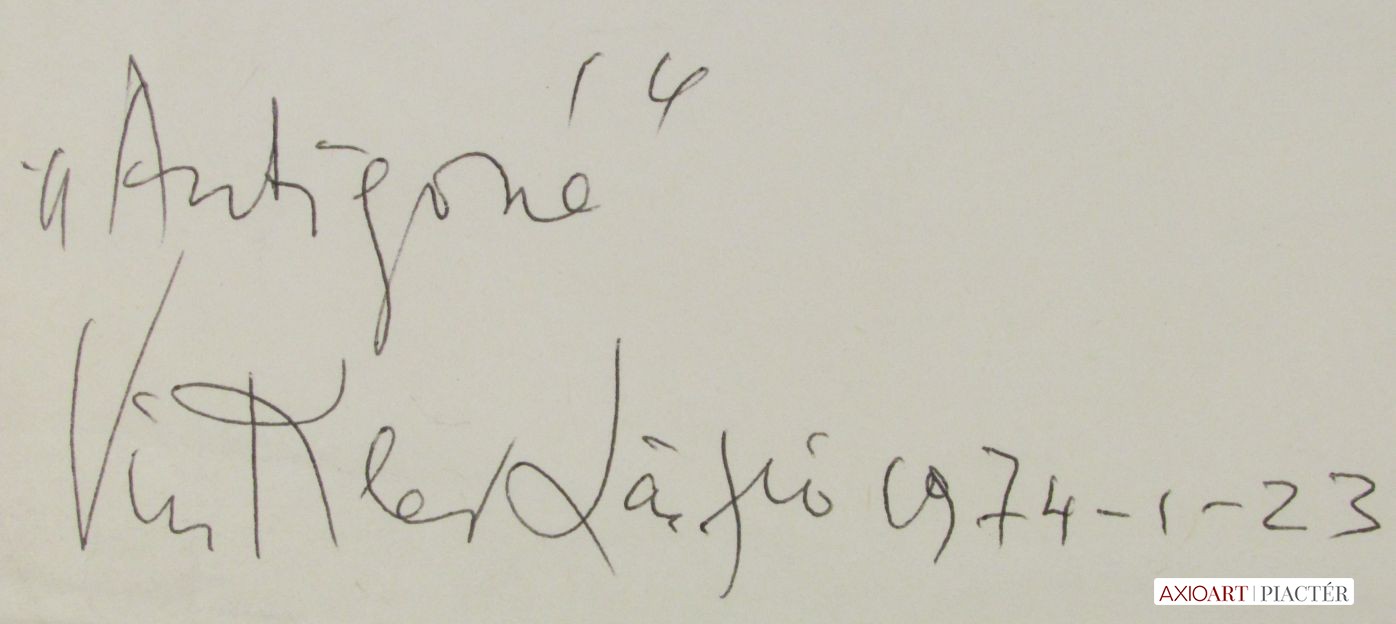 „Antigoné"
Vinkler László 1974-1-23
AXIOART | PIACTÉR